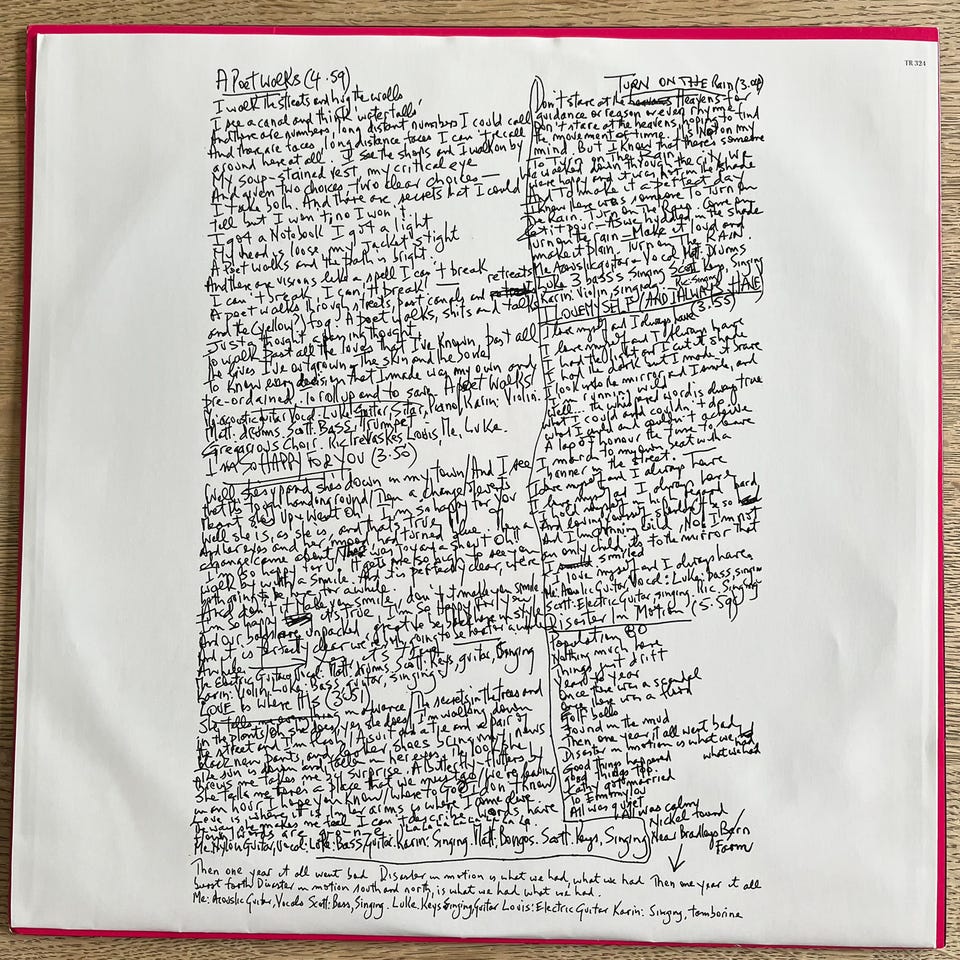 TR 324
A Poet Walks (4.59)
I walk the streets and hug the walls
I see a canal and think waterfalls
And there are numbers, long distant numbers I could call
And there are faces, long distance faces I can't recall
around here at all. I see the shops and I walk on by
My soup-stained vest, my critical eye
And given two choices - two clear choices —
I take both. And there are secrets that I could
tell but I won't, no I won't.
I got a Notebook I got a light
My head is loose my jacket's tight
A Poet walks and the path is bright.
And there are visions like a spell I can't break
I can't break, I can't break retreats
A poet walks through streets, past canals and
and the (yellow) fog. A poet walks, shits and talks
Just a thought, a passing thought
To walk past all the loves that I've known, past all
the lives I've outgrown. The skin and the bowel
To know every decision that I made was my own and
pre-ordained. To roll up and to say A poet walks!
Me: acoustic guitar Vocal: Luke: Guitar, Sitar, Piano, Karin: Violin.
Matt: drums. Scott: Bass, Trumpet
Gregarious Choir: Ric, Trevaskes Louis, Me, Luke.
I'm SO HAPPY FOR YOU (3.50)
Well she's up and she's down in my town / And I see
that it's
Well she is, as she is, and that's true
And her eyes and my mood had turned blue. Then a
change came about
I'm so happy for U. It gets me so
walk by with a smile. And it is perfectly clear, we're
going to be here for a while.
And don't it make you smile, don't it make you smile
And our bags are unpacked
And it is perfectly clear we're going to be here for a while
Awhile
Me Electric Guitar, Vocal: Matt: drums, Scott: Keys, guitar, Singing
Karin: Violin. Luke: Bass, guitar, singing
LOVE is where it is (3.51)
She tells me
in the plants, oh she does, yes she does / I'm walking down
the street and I'm
black new pants, and
the sun is down and
Greys me takes me by surprise. A butterfly flutters by
She tells me there's a place that we must go / we're leaving
in an hour I hope you know / where to Go I don't know
Love is where it is / her arms is where I
The way she makes me feel I can't describe
La La La La La La La
Me: Nylon Guitar, Vocal: Luke: Bass/Guitar. Karin: Singing. Matt: Bongos. Scott: Keys, Singing
TURN ON THE Rain (3.08)
Don't stare at the Heavens for
guidance or reason or even rhyme
Don't stare at the heavens, hoping to find
the movement of time. It's not on my
mind. But I know that there's someone
To Turn on the rain
we walked down through the city, we
were happy and it was
And to make it a perfect day
I know there was someone to turn on
the Rain. Turn on the Rain. Come on,
let it pour - As we huddled in the shade
Turn on the rain — Make it loud and
make it plain. Turn on the RAIN
Me Acoustic guitar & Vocal Matt: Drums
Luke 3 bass singing Scott Keys, Singing
Karin: Violin, singing Ric: Singing
I LOVE MYSELF (AND I ALWAYS HAVE) (3.55)
I love myself and I always have
I love myself and I always have
I had the light and I cut it short
I had the dark but I made it worse
I look into the mirror and I smile, and
I'm running wild
Well... the whispered word is always true
what I could and couldn't do
what I could and couldn't achieve
A lap of honour the time to leave
I march to my own beat with a
banner in the street.
I love myself and I always have
I love myself and I always have
And loving yourself
And I'm running wild. No! I'm not
an only child, it's to the mirror that
I smiled
I love myself and I always have.
Me: Acoustic Guitar, Vocal: Luke: Bass, Singing
Scott: Electric Guitar, singing Ric. Singing
Disaster In Motion (5.59)
Population 80
Nothing much here
Things just drift
Year to year
Once there was a scandal
Once there was a
Golf balls
Found in the mud
Then one year it all went bad
Disaster in motion is what we had
what we had
Good things happened
good things
Kathy got married
To Emmylou
All was quiet
All was calm
Nickel found
Near Bradleys Barn
Farm
Then one year it all went bad Disaster in motion is what we had, what we had Then one year it all
burst forth / Disaster in motion south and north, is what we had what we had.
Me: Acoustic Guitar, Vocals Scott: Bass, Singing. Luke. Keys Singing, Guitar Louis: Electric Guitar Karin: Singing, tamborine